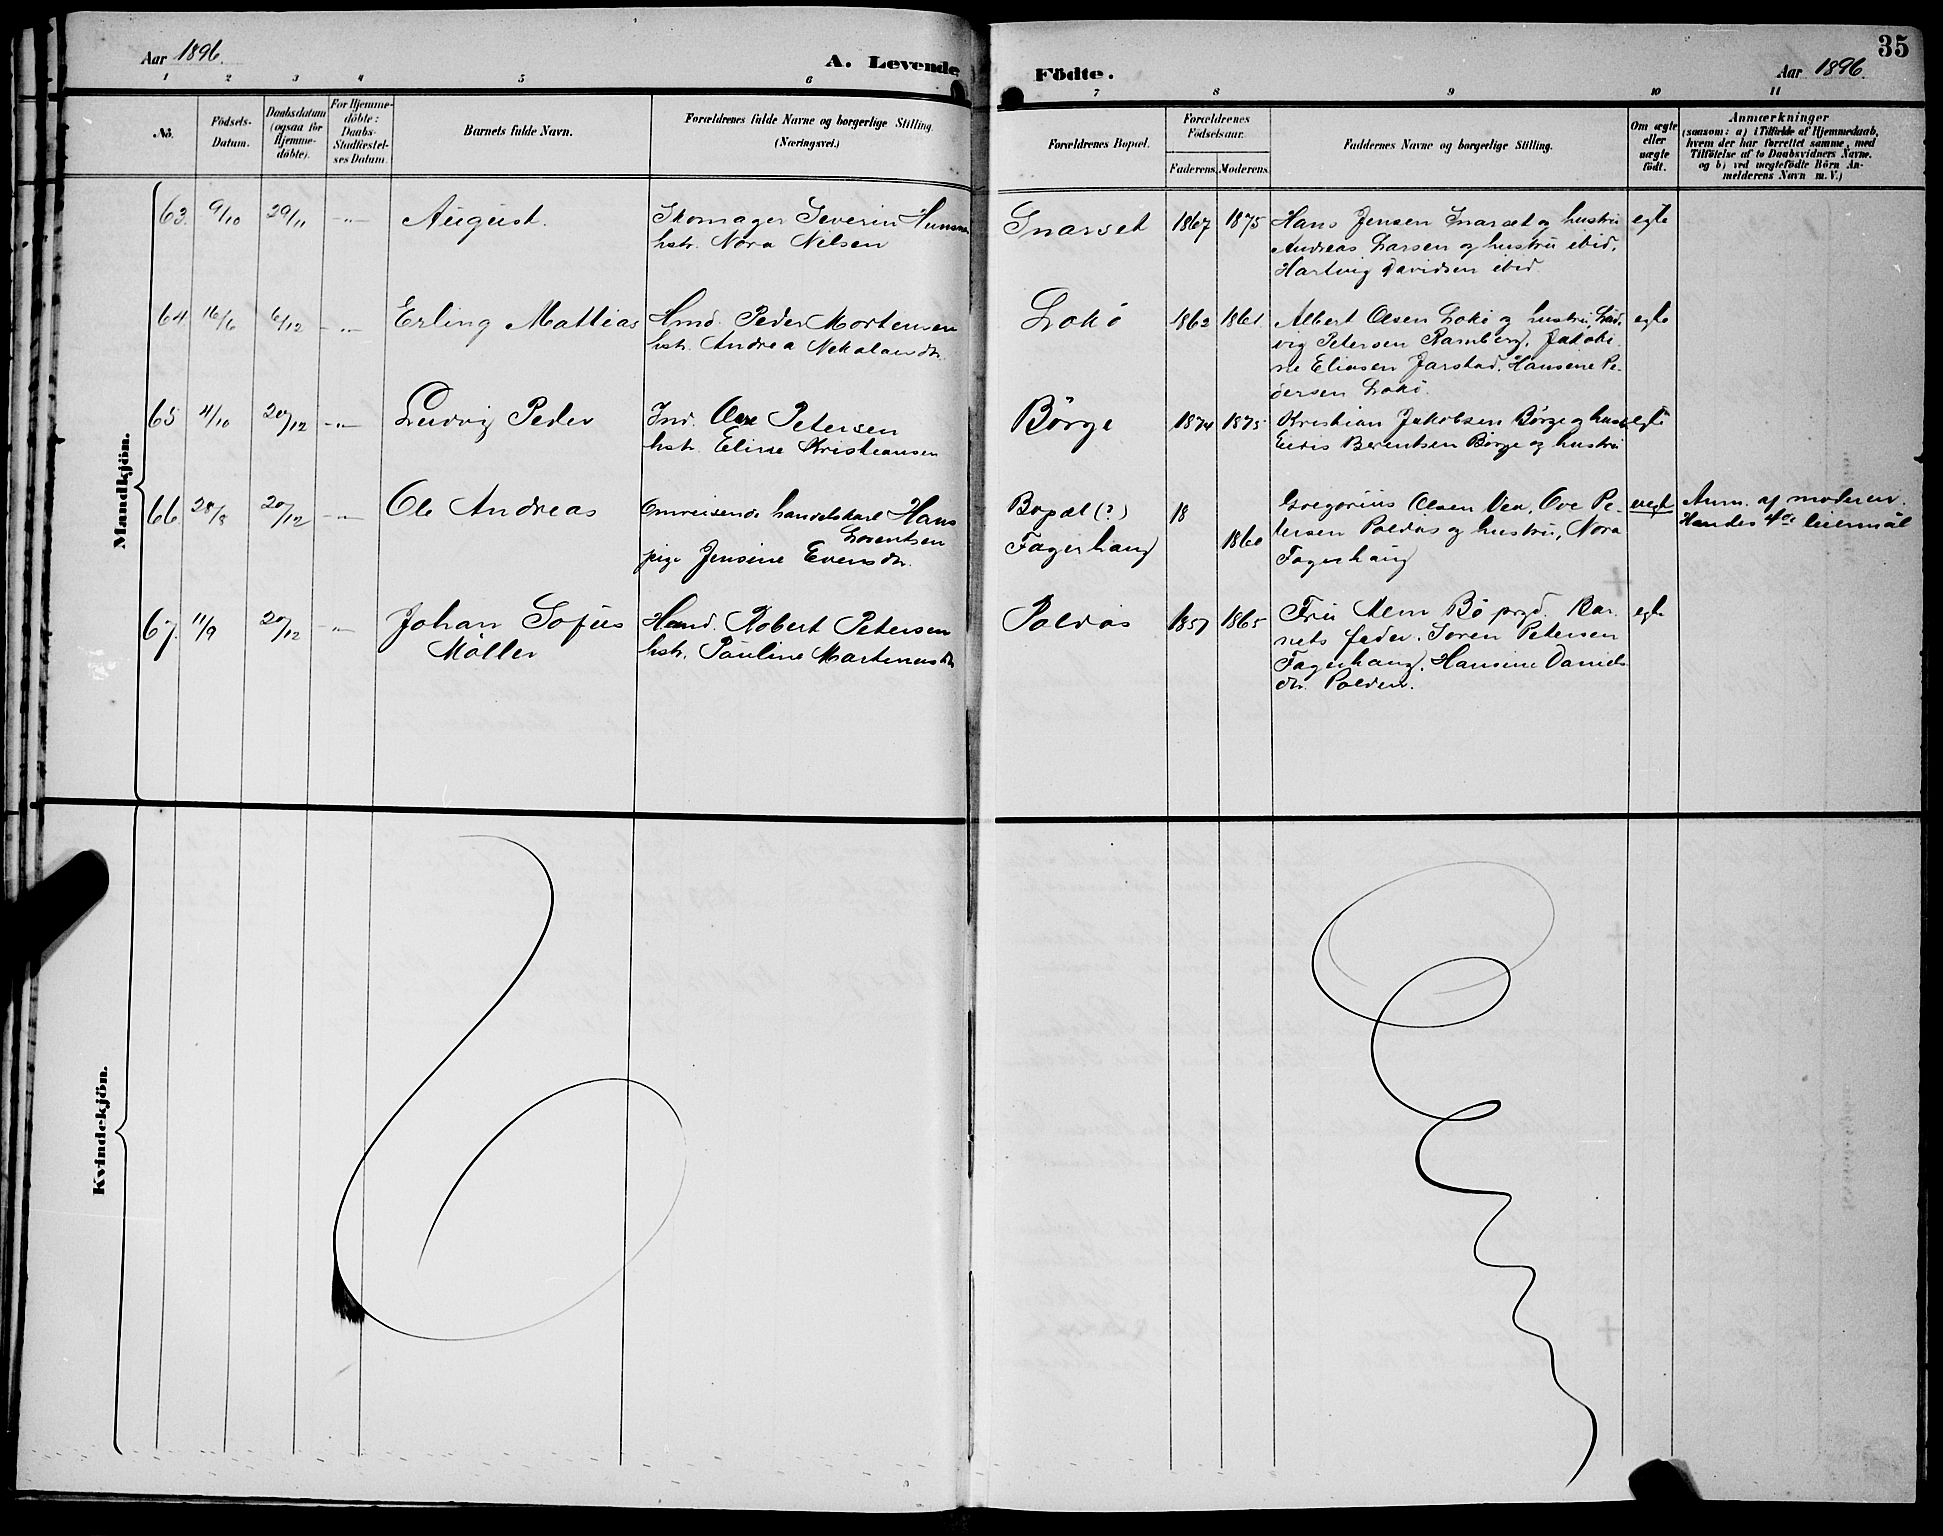 Aar 1896.
A. Levende
Födte.
Aar 1896.
35
1 2 3 4 5 6 7 8 9 10 11
No.
Födsels-
Datum.
Daabsdatum
(ogsaa for
Hjemme-
döbte).
For Hjemme-
döbte:
Daabs-
Stadfæstel-
ses Datum.
Barnets fulde Navn.
Forældrenes fulde Navne og borgerlige Stilling.
(Næringsvei.)
Forældrenes Bopæl.
Forældrenes
Födselsaar.
Faderens. Moderens.
Faddernes Navne og borgerlige Stilling.
Om ægte
eller
uægte
födt.
Anmærkninger
(saasom: a) i Tilfælde af Hjemmedaab,
hvem der har forrettet samme, med
Tilföielse af to Daabsvidners Navne.
og b) ved uægtefödte Börn An-
melderens Navn m. V.)
Mandkjön.
63. 9/10 29/11 -"- August.
Skomager Severin
hstr. Nora Nilsen
Snarset 1867 1875
Hans Jensen Snarset og hustru
Andreas Larsen og hustru ibid.
Hartvig Davidsen ibid
egte
64 16/6 6/12 -"- Erling Mattias
Hmd. Peder Mortensen
hstr. Andrea
Lokö 1862 1861
Albert Olsen Lokö og hustru, Lud-
vig Petersen Ramberg, Jakobi-
ne Eliasen Jarstad, Hansine Pe-
dersen Lokö
egte
65 4/10 20/12 -"- Ludvig Peder
Ind. Petersen
hstr. Eline Kristiansen
Börge 1874 1875
Kristian Jakobsen Börge og hustr.
Berentsen Börge og hustru
egte
66. 28/8 20/12 -"- Ole Andreas
Omreisende handelskarl Hans
Lorentsen
pige Jensine Evensdr.
Bopæl (?)
Fagerhaug
18
1860
Gregorius Olsen Vea, Ove Pe-
tersen Poldas og hustru, Nora
Fagerhaug
uegte
Anm. af moderen.
Hendes 4de leiermål
67. 11/9 20/12 -"- Johan Sofus
Möller
Hmd. Robert Petersen
hstr. Pauline Martinusdr.
Poldas 1857 1865
Fru Bö prgd. Bar-
nets fader. Sören Petersen
Fagerhaug. Hansine Daniels-
dr. Polden.
egte
Kvindekjön.